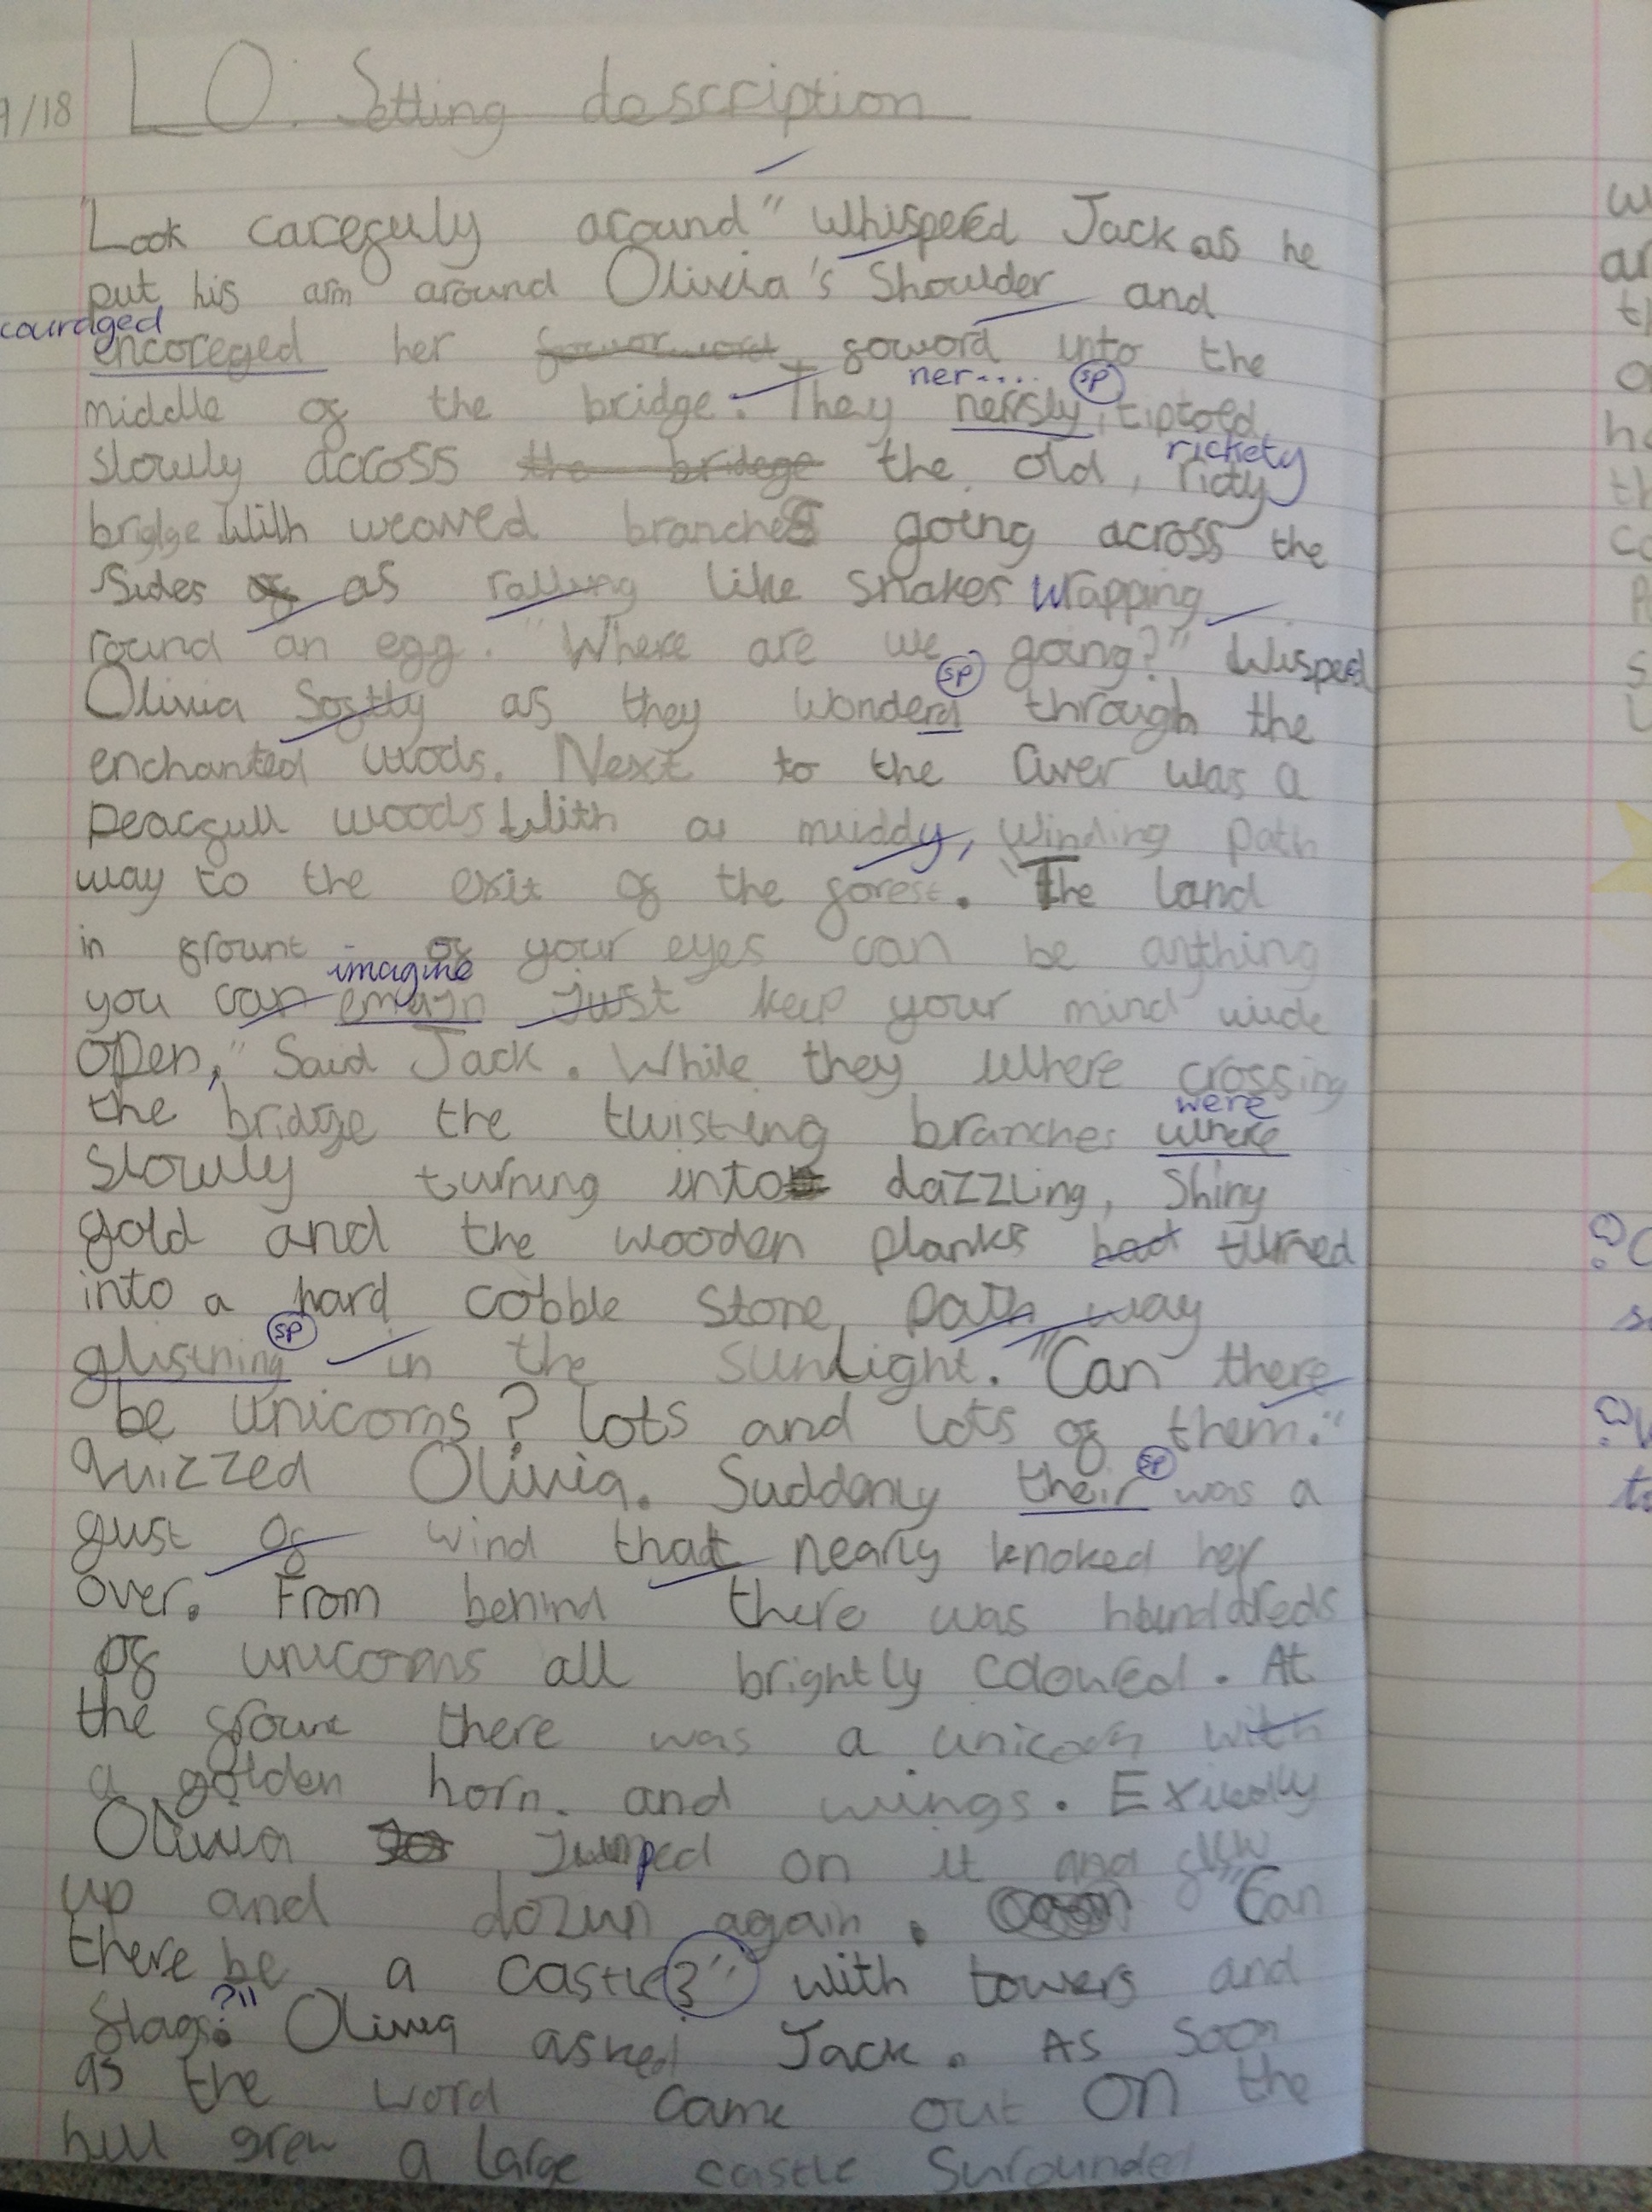 9/18 LO: Setting description
"Look carefuly around" whispered Jack as he
put his arm around Olivia's Shoulder and
couraged
encoreged her foword into the
ner.... sp
middle of the bridge. They nerfsly, tiptoed
rickety
slowly across the bridege the old, ricty
bridge With weaved branches going across the
Sides of as rolling like snakes wrapping
round an egg. "Where are we going?" Wisped
sp
Olivia Softly as they wonderd through the
enchanted woods. Next to the river was a
peacfull woods With a muddy, Winding path
way to the exit of the forest. "The land
in frount of your eyes can be anthing
imagine
you can emajn Just keep your mind wide
open," Said Jack. While they where crossing
the bridge the twisting branches where
were
slowly turning into dazzling, Shiny
gold and the wooden planks had turned
into a hard cobble stone path way
sp
glistning in the sunlight. "Can there
be unicorns? lots and lots of them."
quizzed Olivia. Suddanly their was a
sp
gust of wind that nearly knoked her
over. From behind there was hundreds
of unicorns all brightly coloured. At
the frount there was a unicorn with
a golden horn. and wings. Exitedly
Olivia Jumped on it and flew
up and down again. "Can
there be a castle?" with towers and
?"
flags. Olivia asked Jack. As soon
as the word came out on the
hill grew a large castle Surounded